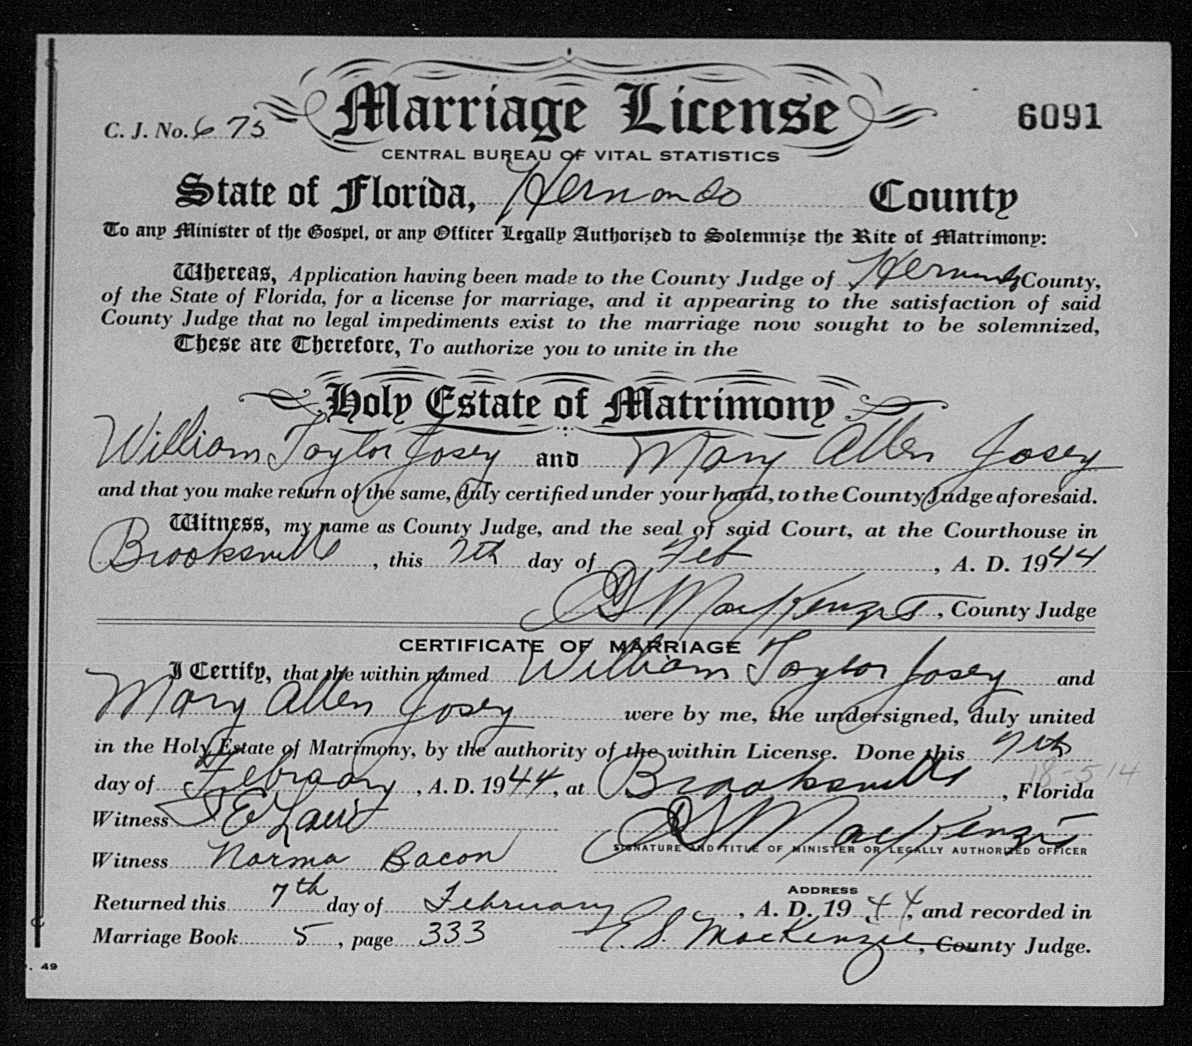 Marriage License
C. J. No. 675
6091
CENTRAL BUREAU OF VITAL STATISTICS
State of Florida, Hernando County
To any Minister of the Gospel, or any Officer Legally Authorized to Solemnize the Rite of Matrimony:
Whereas, Application having been made to the County Judge of Hernando County,
of the State of Florida, for a license for marriage, and it appearing to the satisfaction of said
County Judge that no legal impediments exist to the marriage now sought to be solemnized,
These are Therefore, To authorize you to unite in the
Holy Estate of Matrimony
William Taylor Josey and Mary Allen Josey
and that you make return of the same, duly certified under your hand, to the County Judge aforesaid.
Witness, my name as County Judge, and the seal of said Court, at the Courthouse in
Brooksville, this 7th day of Feb, A. D. 1944
MacKenzie, County Judge
CERTIFICATE OF MARRIAGE
I Certify, that the within named William Taylor Josey and
Mary Allen Josey were by me, the undersigned, duly united
in the Holy Estate of Matrimony, by the authority of the within License. Done this 7th
day of February, A. D. 1944, at Brooksville, Florida
18-514
Witness
MacKenzie
SIGNATURE AND TITLE OF MINISTER OR LEGALLY AUTHORIZED OFFICER
Witness Norma Bacon
ADDRESS
Returned this 7th day of February, A. D. 1944, and recorded in
Marriage Book 5, page 333 E. S. MacKenzie, County Judge.
49